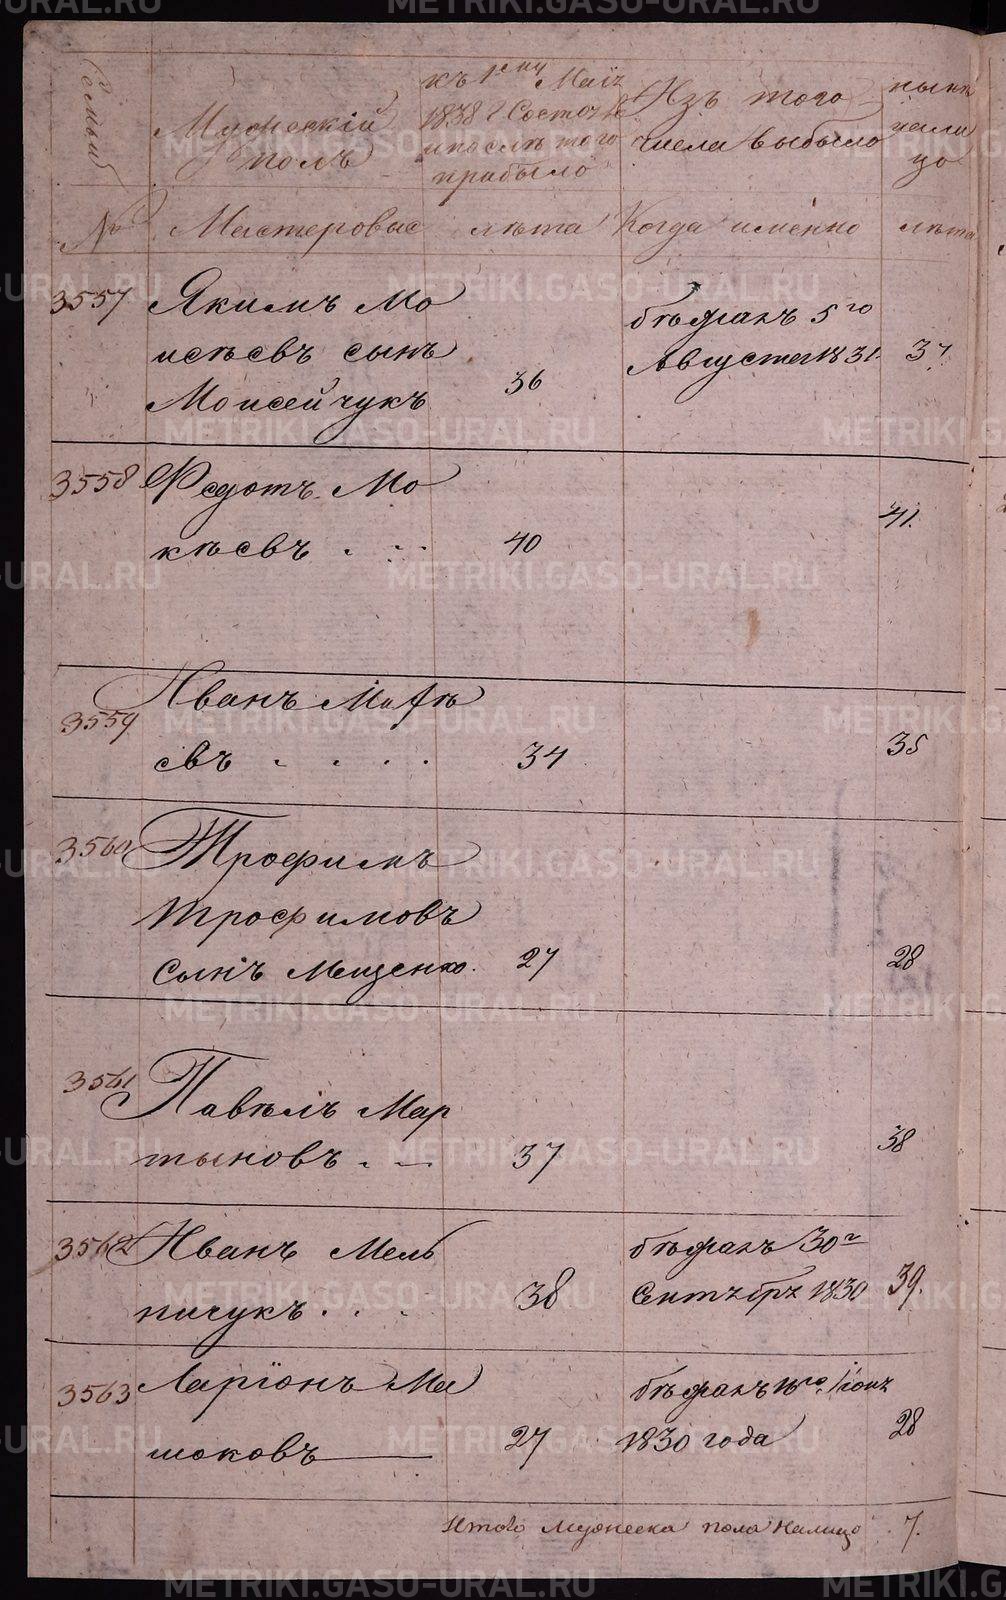 METRIKI.GASO-URAL.RU
Семьи
Мужескій
полъ
къ 1му Маія
1838 г Состоя
и послѣ того
прибыло
Изъ того
числа выбыло
нынѣ
нали
цо
№
Мастеровые
лѣта
Когда именно
лѣта
3557
Якимъ Мо
исѣевъ сынъ
Моисейчукъ
36
бѣжалъ 5го
Августа 1831
37.
3558
Федотъ Мо
кѣевъ . . .
40
41.
3559
Иванъ Матѣ
евъ . . . .
34
35
3560
Трофимъ
Трофимовъ
Сынъ Мещенко.
27
28
3561
Павѣлъ Мар
тыновъ . . .
37
38
3562
Иванъ Мель
ничукъ . . .
38
бѣжалъ 30г
Сентябрѣ 1830
39.
3563
Ларіонъ Ма
шоковъ
27
бѣжалъ 16го Іюнѣ
1830 года
28
Итого Мужеска пола налицо . 7.